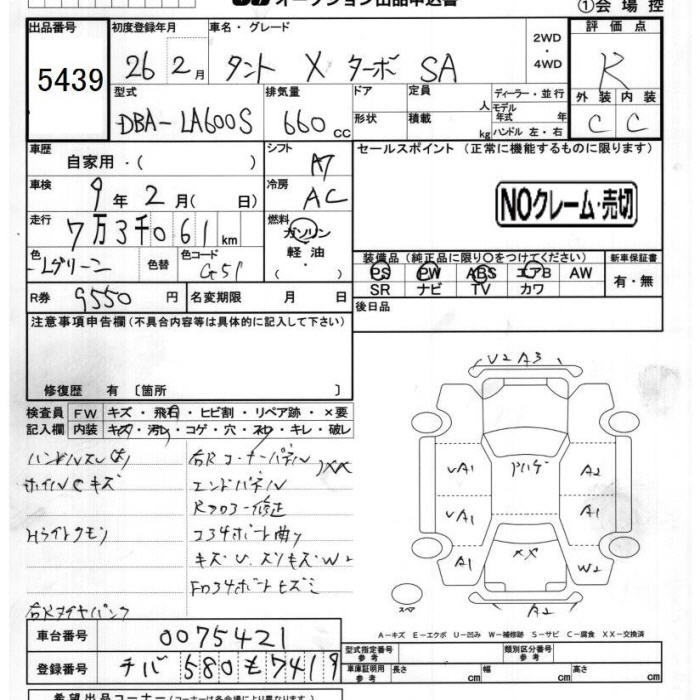 オークション出品申込書
①会場控
出品番号 初度登録年月 車名・グレード 評価点
5439 26年2月 タント X ターボ SA 2WD・4WD R
型式 排気量 ドア 定員 人 ディーラー・並行 外装 内装
DBA-LA600S 660cc 形状 積載 kg モデル年式 年 ハンドル 左・右 C C
車歴 自家用・( ) シフト AT セールスポイント(正常に機能するものに限ります)
車検 9年2月( 日) 冷房 AC
NOクレーム・売切
走行 7万3千061km 燃料 ガソリン 軽油
色 Lグリーン 色替 色コード G51
装備品(純正品に限り○をつけてください) 新車保証書
PS PW ABS エアB AW 有・無
SR ナビ TV カワ
R券 9550円 名変期限 月 日
後日品
注意事項申告欄(不具合内容等は具体的に記入して下さい)
修復歴 有〔箇所 〕
検査員 FW キズ・飛石・ヒビ割・リペア跡・×要
記入欄 内装 キズ・汚レ・コゲ・穴・スレ・キレ・破レ
ハンドルスレ
ホイルCキズ
Hライトクモリ
右Rタイヤパンク
右Rコーナーパネル
エンドパネル
Rフロアー修正
コア4ポート曲り
キズ・U・スリキズ・W2
V2 A3
UA1 アハゲ A2
UA1 A1
A1 XX W2
スペア A2
A-キズ E-エクボ U-凹み W-補修跡 S-サビ C-腐食 XX-交換済
車台番号 0075421
登録番号 チバ 580 モ 7419
型式指定番号 参考 類別区分番号 参考
車庫証明用 参考 長さ cm 幅 cm 高さ cm
希望出品コーナー(コーナーは各会場により異なります。)